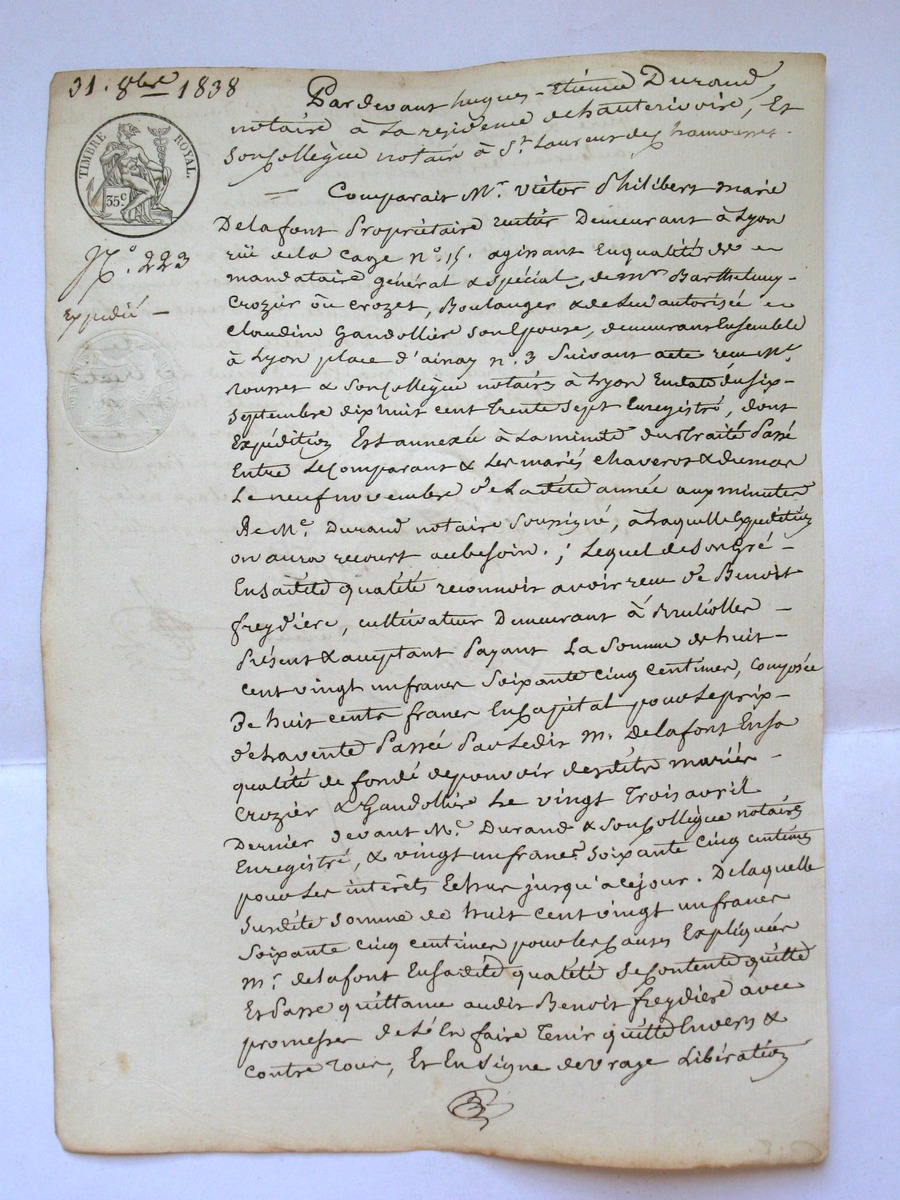 31. 8bre 1838
TIMBRE ROYAL.
35c
No. 223
Expedié
Pardevant hugues-Etienne Durand
notaire à La résidence de hauterivoire, Et
Son Collègue notaire à St. Laurent de chamousset.
Comparait Mr. Victor Philibert marie
Delafont Propriétaire rentier Demeurant à Lyon
rüe de la Cage no. 15. agissant En qualité de
mandataire général & spécial, de mr Barthelemy
Crozier ou Crozet, Boulanger & de lui autorisée
Claudine Gandollier son Epouse, demeurant Ensemble
à Lyon place d'ainay no. 3 Suivant acte recu Me.
rousset & Son Collègue notaires à Lyon En date du Six
Septembre dix huit cent Trente Sept Enregistré, dont
Expédition Est annexée à La minute du Traité Passé
Entre Le Comparant & Les mariés chaverot & dumas
Le neuf novembre de La dite année aux minutes
de Me. Durand notaire Soussigné, à Laquelle Expédition
on aura recourt au besoin. ; Lequel de Son Gré
En Sa dite qualité reconnoit avoir recu de Benoit
freydiere, cultivateur Demeurant à Brullolles
Présent & acceptant Payant La Somme de huit
cent vingt un francs Soixante cinq centimes, Composée
De huit cents francs En Capital pour Le prix
de La vente Passée Par Ledit Mr. Delafont En Sa
qualité de fondé de pouvoir desdits mariés
Crozier & Gandollier Le vingt Trois avril
Dernier devant Me. Durand & Son Collègue notaires
Enregistré, & vingt un francs Soixante cinq centimes
pour Les intérêts Echus jusqu'à ce jour. De laquelle
Susdite Somme de huit cent vingt un francs
Soixante cinq centimes pour les Causes Expliquées
Mr. delafont En Sa dite qualité Se Contente quitte
Et Passe quittance audit Benoit freydiere avec
promesses de Le En faire Tenir quitte Envers &
Contre Tous, Et En Signe de vraye Libération